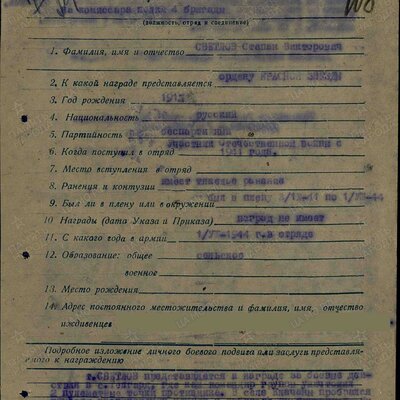 комиссара полка 4 бригады
(должность, отряд и соединение)
1. Фамилия, имя и отчество СВЕТЛОВ Степан Викторович
2. К какой награде представляется ордену КРАСНОЙ ЗВЕЗДЫ
3. Год рождения
4. Национальность русский
5. Партийность беспартийный
участник Отечественной войны с
6. Когда поступил в отряд 1941 года.
7. Место вступления в отряд
8. Ранения и контузии имеет тяжелое ранение
9. Был ли в плену или в окружении был в плену
10 Награды (дата Указа и Приказа) наград не имеет
11. С какого года в армии 1944 г. в отряде
12. Образование: общее сельское
военное
13. Место рождения
14. Адрес постоянного местожительства и фамилия, имя, отчество
иждивенцев
Подробное изложение личного боевого подвига или заслуги представляе-
мого к награждению
т. СВЕТЛОВ представляется к награде за боевые дей-
2 пулеметные точки противника. В селе прорвался